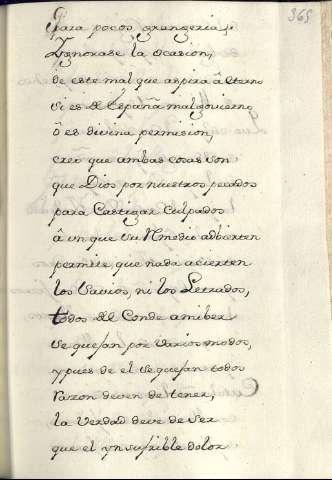 369
para pocos grangerias;
Ignorase la ocasion,
de este mal que aspira â eterno
si es de España mal govierno
ô es divina permision,
creo que ambas cosas son
que Dios por nuestros pecados
para Castigar Culpados
â un que su Rmedio adbierten
permite, que nada acierten
los Savios, ni los Letrados,
todos del Conde amiber
se quejan por varios modos,
y pues de el se quejan todos
razon deven de tener,
la Verdad deve de Ser
que el ynsufrible dolor